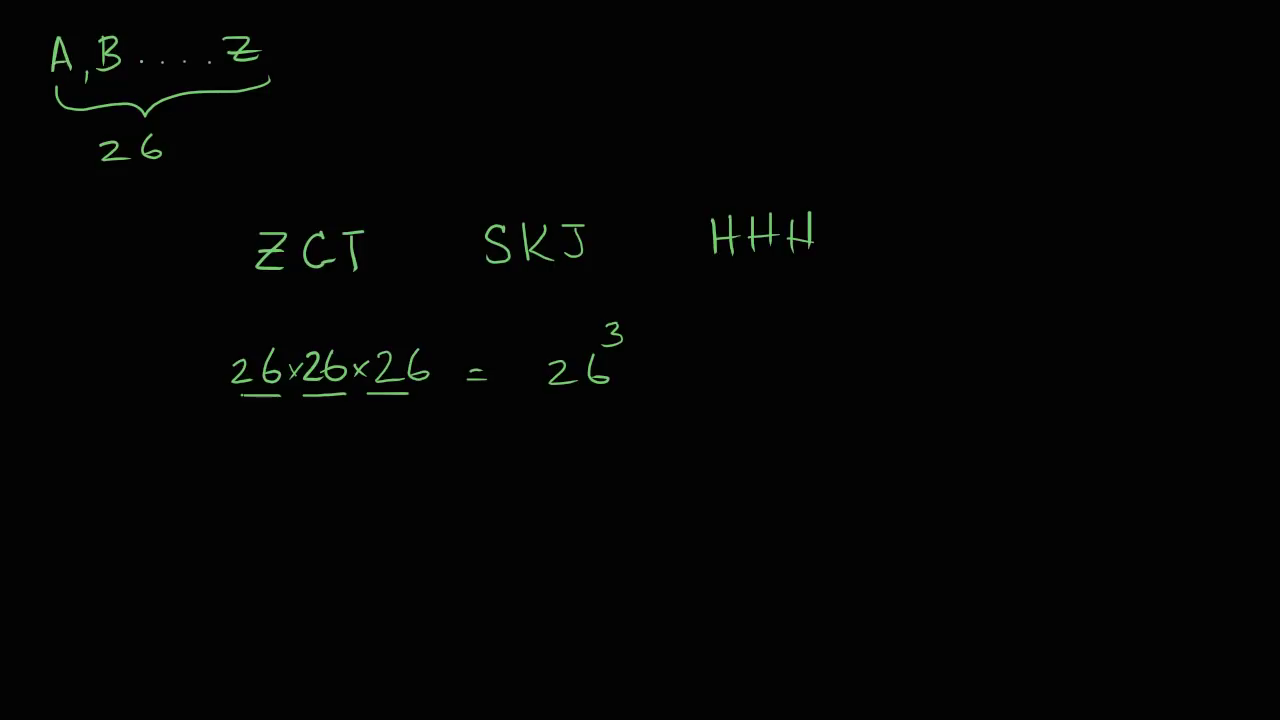 A, B ..... Z
26
ZGT SKJ HHH
26 × 26 × 26 = 26³